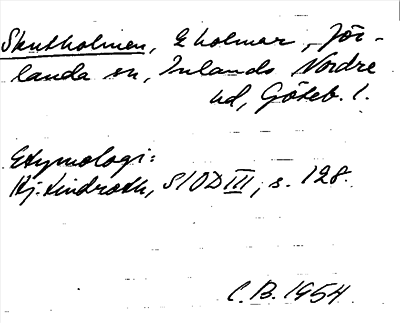 Skutholmen, 2 holmar, Jör-
landa sn, Inlands Nordre
hd, Göteb. l.
Etymologi:
Hj. Lindroth, SIOD III, s. 128.
C.B. 1954